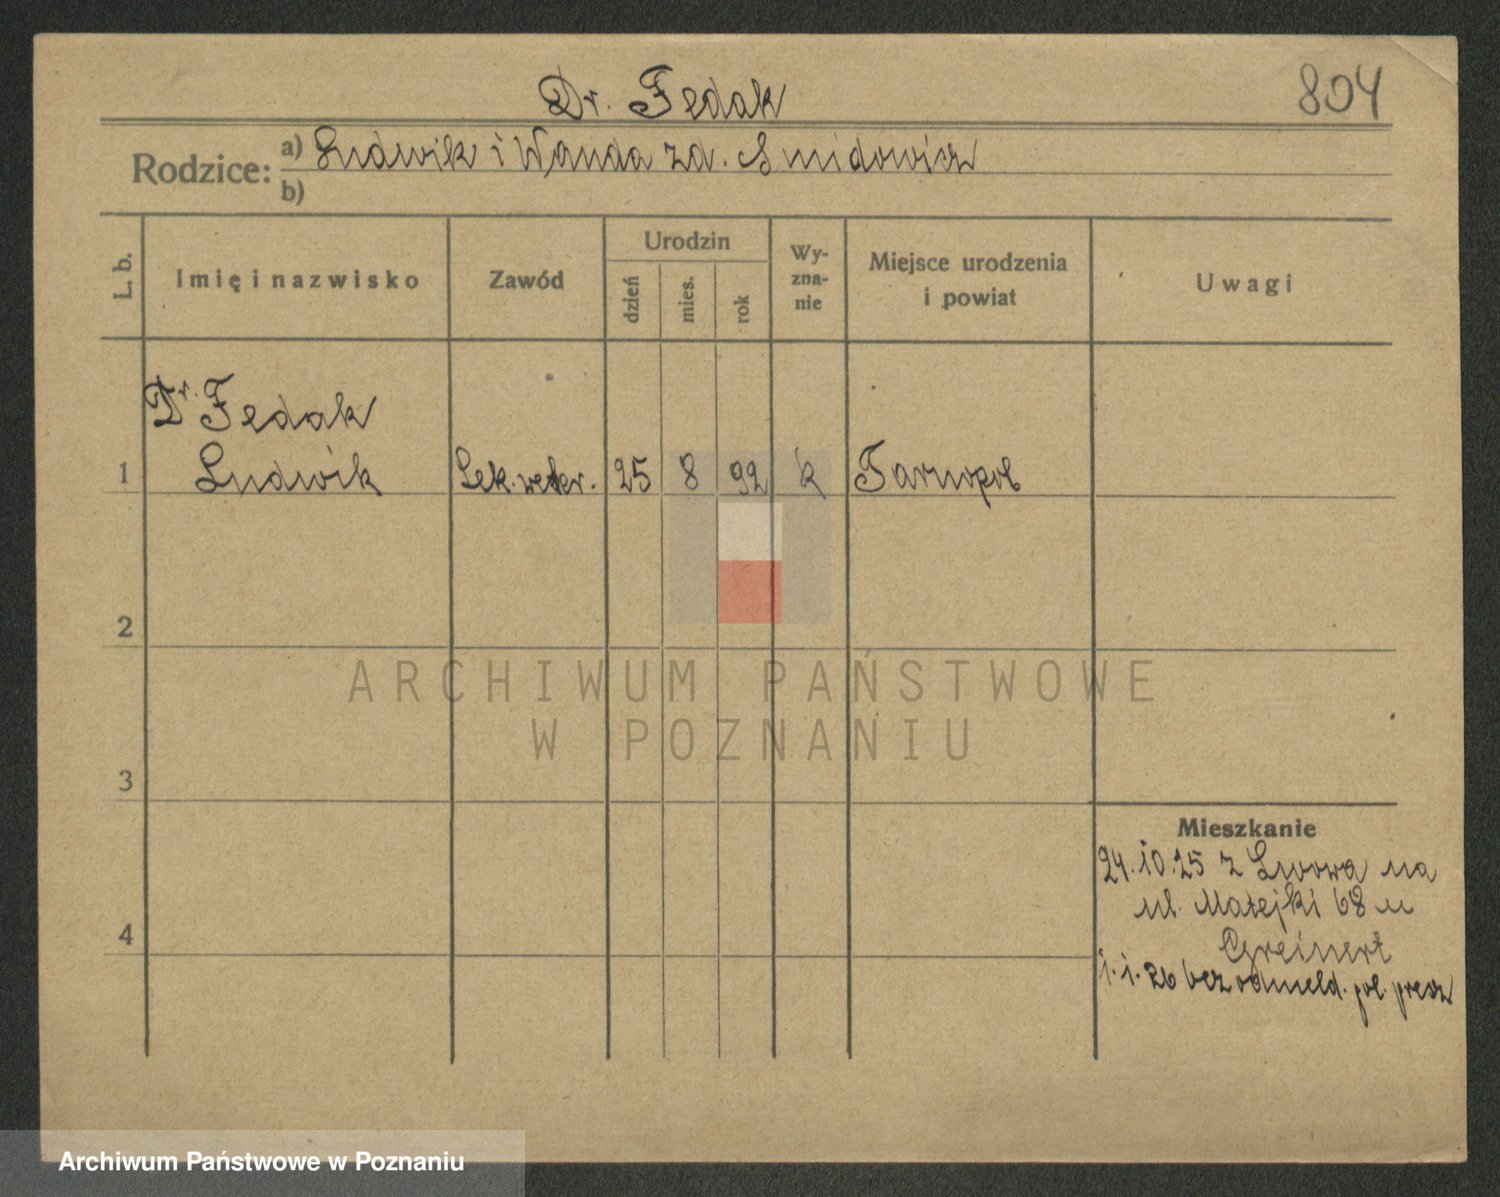 Dr. Fedak
804
Rodzice: a) Ludwik i Wanda zd. Smidowicz
b)
L. b.
Imię i nazwisko
Zawód
Urodzin
dzień
mies.
rok
Wy-
zna-
nie
Miejsce urodzenia
i powiat
Uwagi
Dr. Fedak
1 Ludwik Lek. weter. 25 8 92 k Tarnopol
2
ARCHIWUM PAŃSTWOWE
W POZNANIU
3
Mieszkanie
24.10.25 z Lwowa na
ul. Matejki 68 u
4
Greinert
1.1.26 bez odmeld. pol. precz
Archiwum Państwowe w Poznaniu